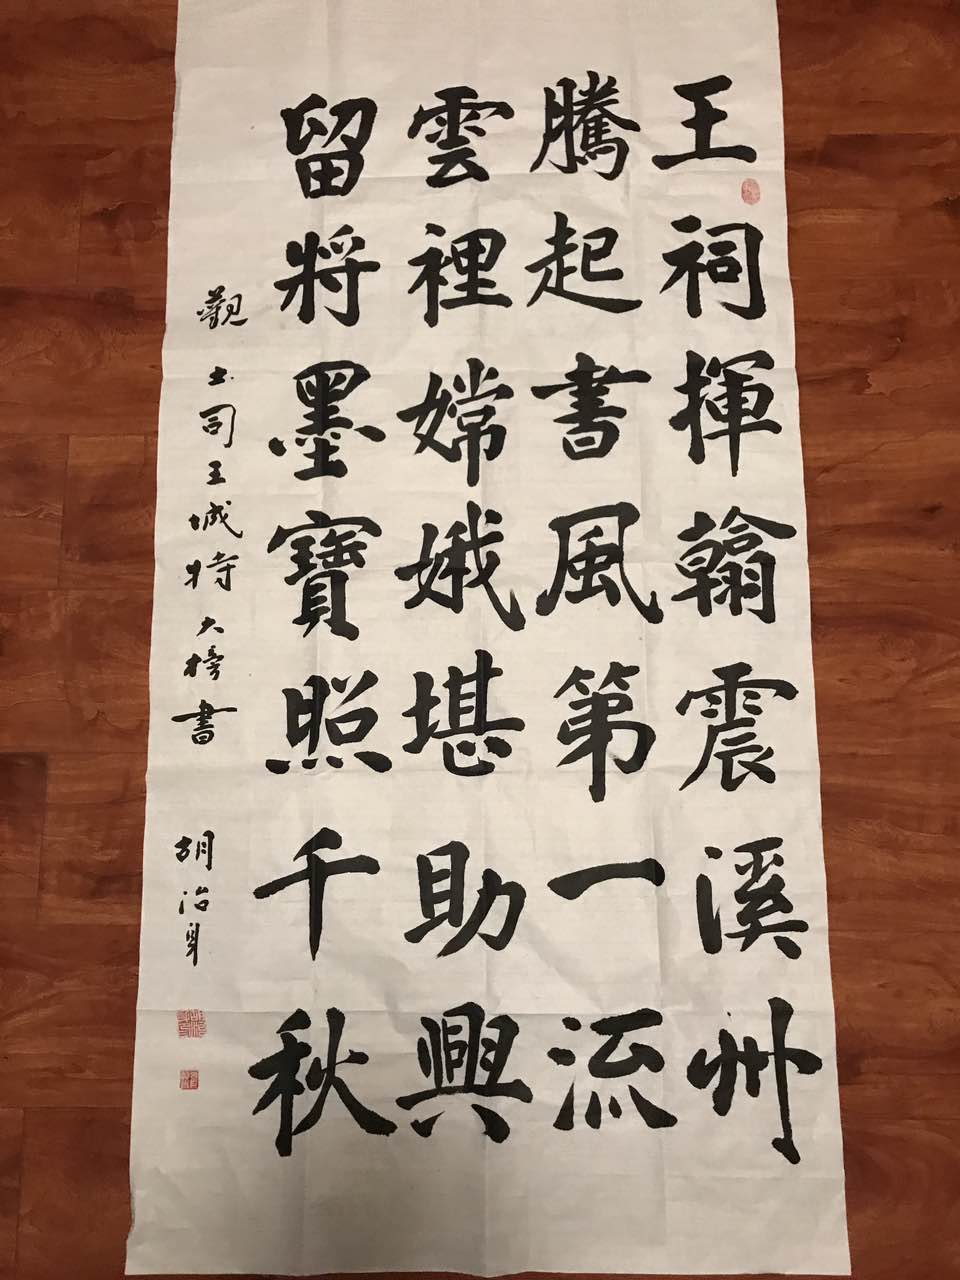 王祠揮翰震溪州
騰起書風第一流
雲裡嫦娥堪助興
留將墨寶照千秋
觀土司王城特大榜書
胡治身